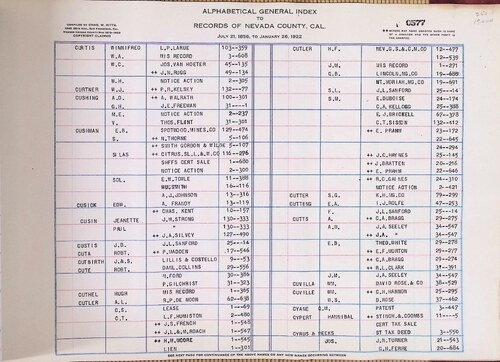 ALPHABETICAL GENERAL INDEX
TO
RECORDS OF NEVADA COUNTY, CAL.
JULY 21, 1856, TO JANUARY 26, 1922
0577
COPYRIGHT CLAIMED
CURTIS WINNIFRED L.P.LARUE 103—359
W.A. HIS RECORD 3—608
W.C. JOS.VAN HOETER 45—135
++ J.N.RUGG 49—134
W.H. NOTICE ACTION 2—305
CURTNER W.J. ++ P.H.KELSEY 132—77
CUSHING A.D. ++ A.WALRATH 100—301
G.H. ++ J.C.FREEMAN 31—1
M.E. NOTICE ACTION 2—237
V. THOS.FLINT 31—301
CUSHMAN E.R. SPOTWOOD,MINES,CO 129—474
S. ++ N.THORNE 5—106
++ SMITH GORDON & WILDE 5—107
SILAS ++ CITRUS,SL.L.& W.CO 116—276
SHFFS CERT SALE 1—600
NOTICE ACTION 2—300
SOL. E.W.TOBLE 11—388
16—116
A.J.JOHNSON 13—316
CUSICK EDW. A. FRAUDY 13—119
++ CHAS. KENT 10—157
CUSIN JEANETTE J.H.STRONG 130—333
PAUL " 130—333
++ J.A.SILVEY 127—490
CUSTIS J.B. J.L.SANFORD 25—14
CUTA ROBT. ++ P.MADDEN 19—546
CUTBIRTH J.&S. LILLIS & COSTELLO 9—53
CUTE ROBT. DANL.COLLINS 29—556
M.FORD 30—386
P.GILCHRIST 31—323
CUTHEL HUGH HIS RECORD 1—365
CUTLER A.L. R.P.DE NOON 62—638
C.S. LEASE 1—69
C.T. L.F.HUMISTON 2—480
++ J.S.FRENCH 1—548
++ J.L.& M.ROACH 1—547
++ H.H.MOORE 1—545
LIEN 1—301
CUTLER H.F. REV.G.S.& C.M.CO 12—477
12—539
J.M. HIS RECORD 1—271
O.B. LINCOLN,MG.CO 19—688
MT.MORIAH,MG.CO 19—691
S.L. J.L.SANFORD 25—14
S.M. E.DUBOISE 24—174
C.A KELLOGG 25—388
E.J.BRICKELL 67—378
C.T.SISSON 132—412
++ E. PRANK 23—172
22—645
24—294
++ J.E.HAYNES 25—145
++ J.BRATTEN 20—256
++ E. PRANK 22—646
++ R.C.GAINES 24—310
NOTICE ACTION 2—421
CUTTER S.G. K.H.MG.CO 79—299
CUTTING E.A. I.J.ROLFE 47—253
F. J.L.SANFORD 25—14
CUTTS A. ++ C.A.BRAGG 29—275
A.H. ++ J.A.SEELEY 34—547
++ J.A. " 34—547
E.B. THEO.WHITE 29—278
++ E.F.HORTON 29—277
++ C.A.BRAGG 29—274
++ R.L.CLARK 31—391
J.M. ++ J.A.SEELEY 34—547
CUVILLA WM. DAVID ROSE,& CO 38—529
CUVILLE WM. ++ C.H.HANSON 25—295
H.S. D.ROSE 37—462
CYANE G.W. PATENT 3—447
CYPERT HANNIBAL ++ STITCH,& COOMBS 11—5
CERT TAX SALE
CYRUS & SEEKS ST TAX DEED 3—550
JOS. J.R.TURNER 21—543
G.H.FERRE 20—684